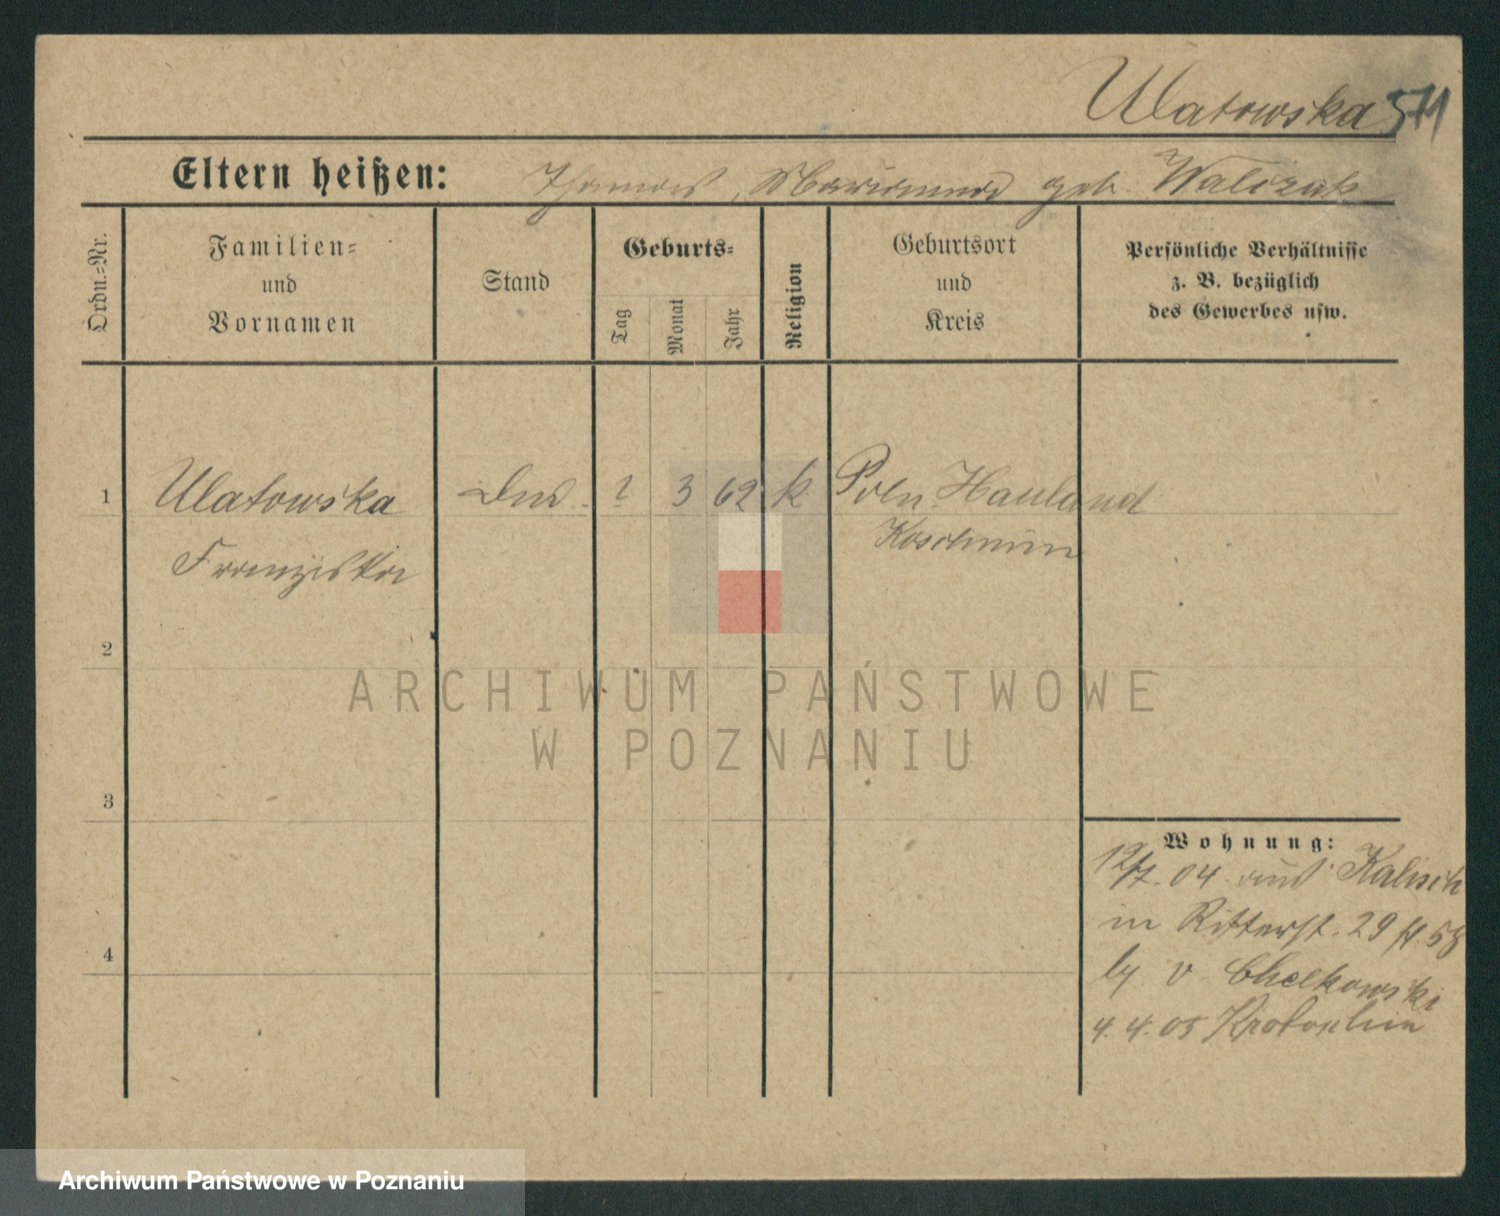 Ulatowska 571
Eltern heißen: Thomas, Marianna geb. Walczak
Ordn.=Nr.
Familien=
und
Vornamen
Stand
Geburts=
Tag
Monat
Jahr
Religion
Geburtsort
und
Kreis
Persönliche Verhältnisse
z. B. bezüglich
des Gewerbes usw.
1 Ulatowska ? 3 62 k Poln Hauland
Franziska Koschmin
2
3
4
ARCHIWUM PAŃSTWOWE
W POZNANIU
Wohnung:
04 aus Kalisch
in Ritterst. 29
v Chelkowski
4. 4. 05 Krotoschin
Archiwum Państwowe w Poznaniu